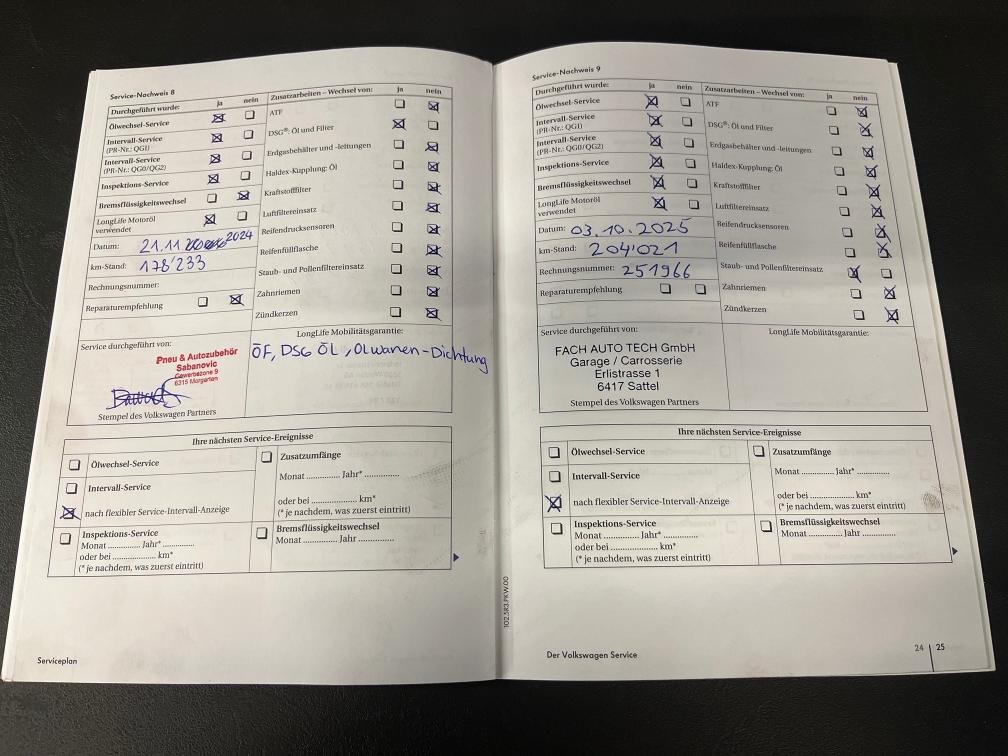 Service-Nachweis 8
Durchgeführt wurde: ja nein
Ölwechsel-Service
Intervall-Service
(PR-Nr.: QG1)
Intervall-Service
(PR-Nr.: QG0/QG2)
Inspektions-Service
Bremsflüssigkeitswechsel
LongLife Motoröl
verwendet
Datum: 21.11 2024
km-Stand: 178'233
Rechnungsnummer:
Reparaturempfehlung
Zusatzarbeiten – Wechsel von: ja nein
ATF
DSG®: Öl und Filter
Erdgasbehälter und -leitungen
Haldex-Kupplung: Öl
Kraftstofffilter
Luftfiltereinsatz
Reifendrucksensoren
Reifenfüllflasche
Staub- und Pollenfiltereinsatz
Zahnriemen
Zündkerzen
Service durchgeführt von:
Pneu & Autozubehör
Sabanovic
Gewerbezone 9
6315 Morgarten
Stempel des Volkswagen Partners
LongLife Mobilitätsgarantie:
ÖF, DSG ÖL, Ölwanen-Dichtung
Ihre nächsten Service-Ereignisse
Ölwechsel-Service
Intervall-Service
nach flexibler Service-Intervall-Anzeige
Inspektions-Service
Monat .............. Jahr* ..............
oder bei .................... km*
(* je nachdem, was zuerst eintritt)
Zusatzumfänge
Monat .............. Jahr* ..............
oder bei .................... km*
(* je nachdem, was zuerst eintritt)
Bremsflüssigkeitswechsel
Monat .............. Jahr ..............
Serviceplan
Service-Nachweis 9
Durchgeführt wurde: ja nein
Ölwechsel-Service
Intervall-Service
(PR-Nr.: QG1)
Intervall-Service
(PR-Nr.: QG0/QG2)
Inspektions-Service
Bremsflüssigkeitswechsel
LongLife Motoröl
verwendet
Datum: 03.10.2025
km-Stand: 204'021
Rechnungsnummer: 251966
Reparaturempfehlung
Zusatzarbeiten – Wechsel von: ja nein
ATF
DSG®: Öl und Filter
Erdgasbehälter und -leitungen
Haldex-Kupplung: Öl
Kraftstofffilter
Luftfiltereinsatz
Reifendrucksensoren
Reifenfüllflasche
Staub- und Pollenfiltereinsatz
Zahnriemen
Zündkerzen
Service durchgeführt von:
FACH AUTO TECH GmbH
Garage / Carrosserie
Erlistrasse 1
6417 Sattel
Stempel des Volkswagen Partners
LongLife Mobilitätsgarantie:
Ihre nächsten Service-Ereignisse
Ölwechsel-Service
Intervall-Service
nach flexibler Service-Intervall-Anzeige
Inspektions-Service
Monat .............. Jahr* ..............
oder bei .................... km*
(* je nachdem, was zuerst eintritt)
Zusatzumfänge
Monat .............. Jahr* ..............
oder bei .................... km*
(* je nachdem, was zuerst eintritt)
Bremsflüssigkeitswechsel
Monat .............. Jahr ..............
102.5R3.PKW.00
Der Volkswagen Service
24 | 25